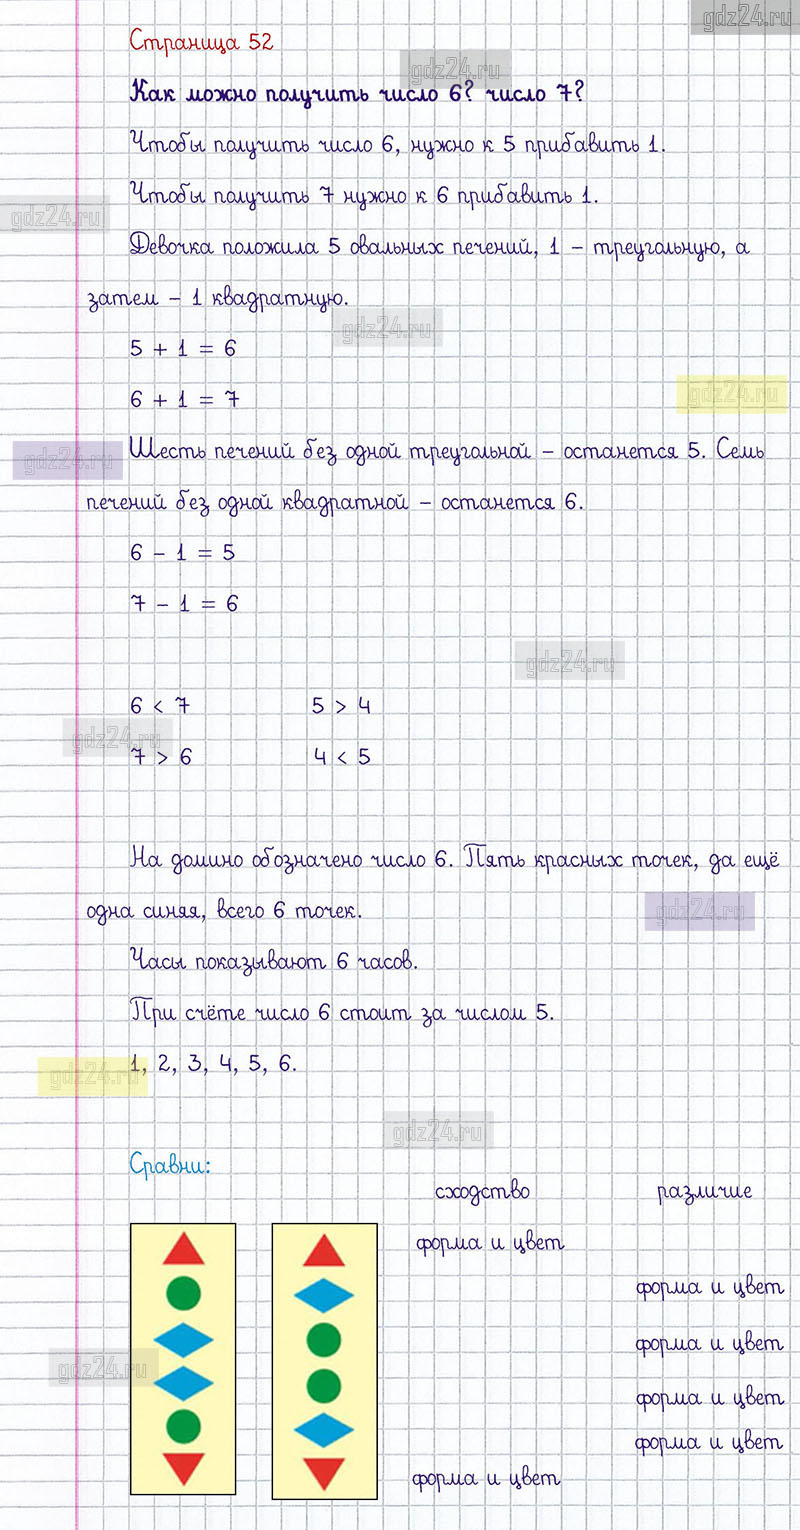 gdz24.ru
Страница 52
gdz24.ru
Как можно получить число 6? число 7?
Чтобы получить число 6, нужно к 5 прибавить 1.
Чтобы получить 7 нужно к 6 прибавить 1.
gdz24.ru
Девочка положила 5 овальных печений, 1 – треугольную, а
затем – 1 квадратную.
gdz24.ru
5 + 1 = 6
6 + 1 = 7
gdz24.ru
Шесть печений без одной треугольной – останется 5. Семь
gdz24.ru
печений без одной квадратной – останется 6.
6 – 1 = 5
7 – 1 = 6
gdz24.ru
6 < 7 5 > 4
gdz24.ru
7 > 6 4 < 5
На домино обозначено число 6. Пять красных точек, да ещё
одна синяя, всего 6 точек.
gdz24.ru
Часы показывают 6 часов.
При счёте число 6 стоит за числом 5.
1, 2, 3, 4, 5, 6.
gdz24.ru
gdz24.ru
Сравни:
сходство различие
форма и цвет
форма и цвет
форма и цвет
gdz24.ru
форма и цвет
форма и цвет
форма и цвет